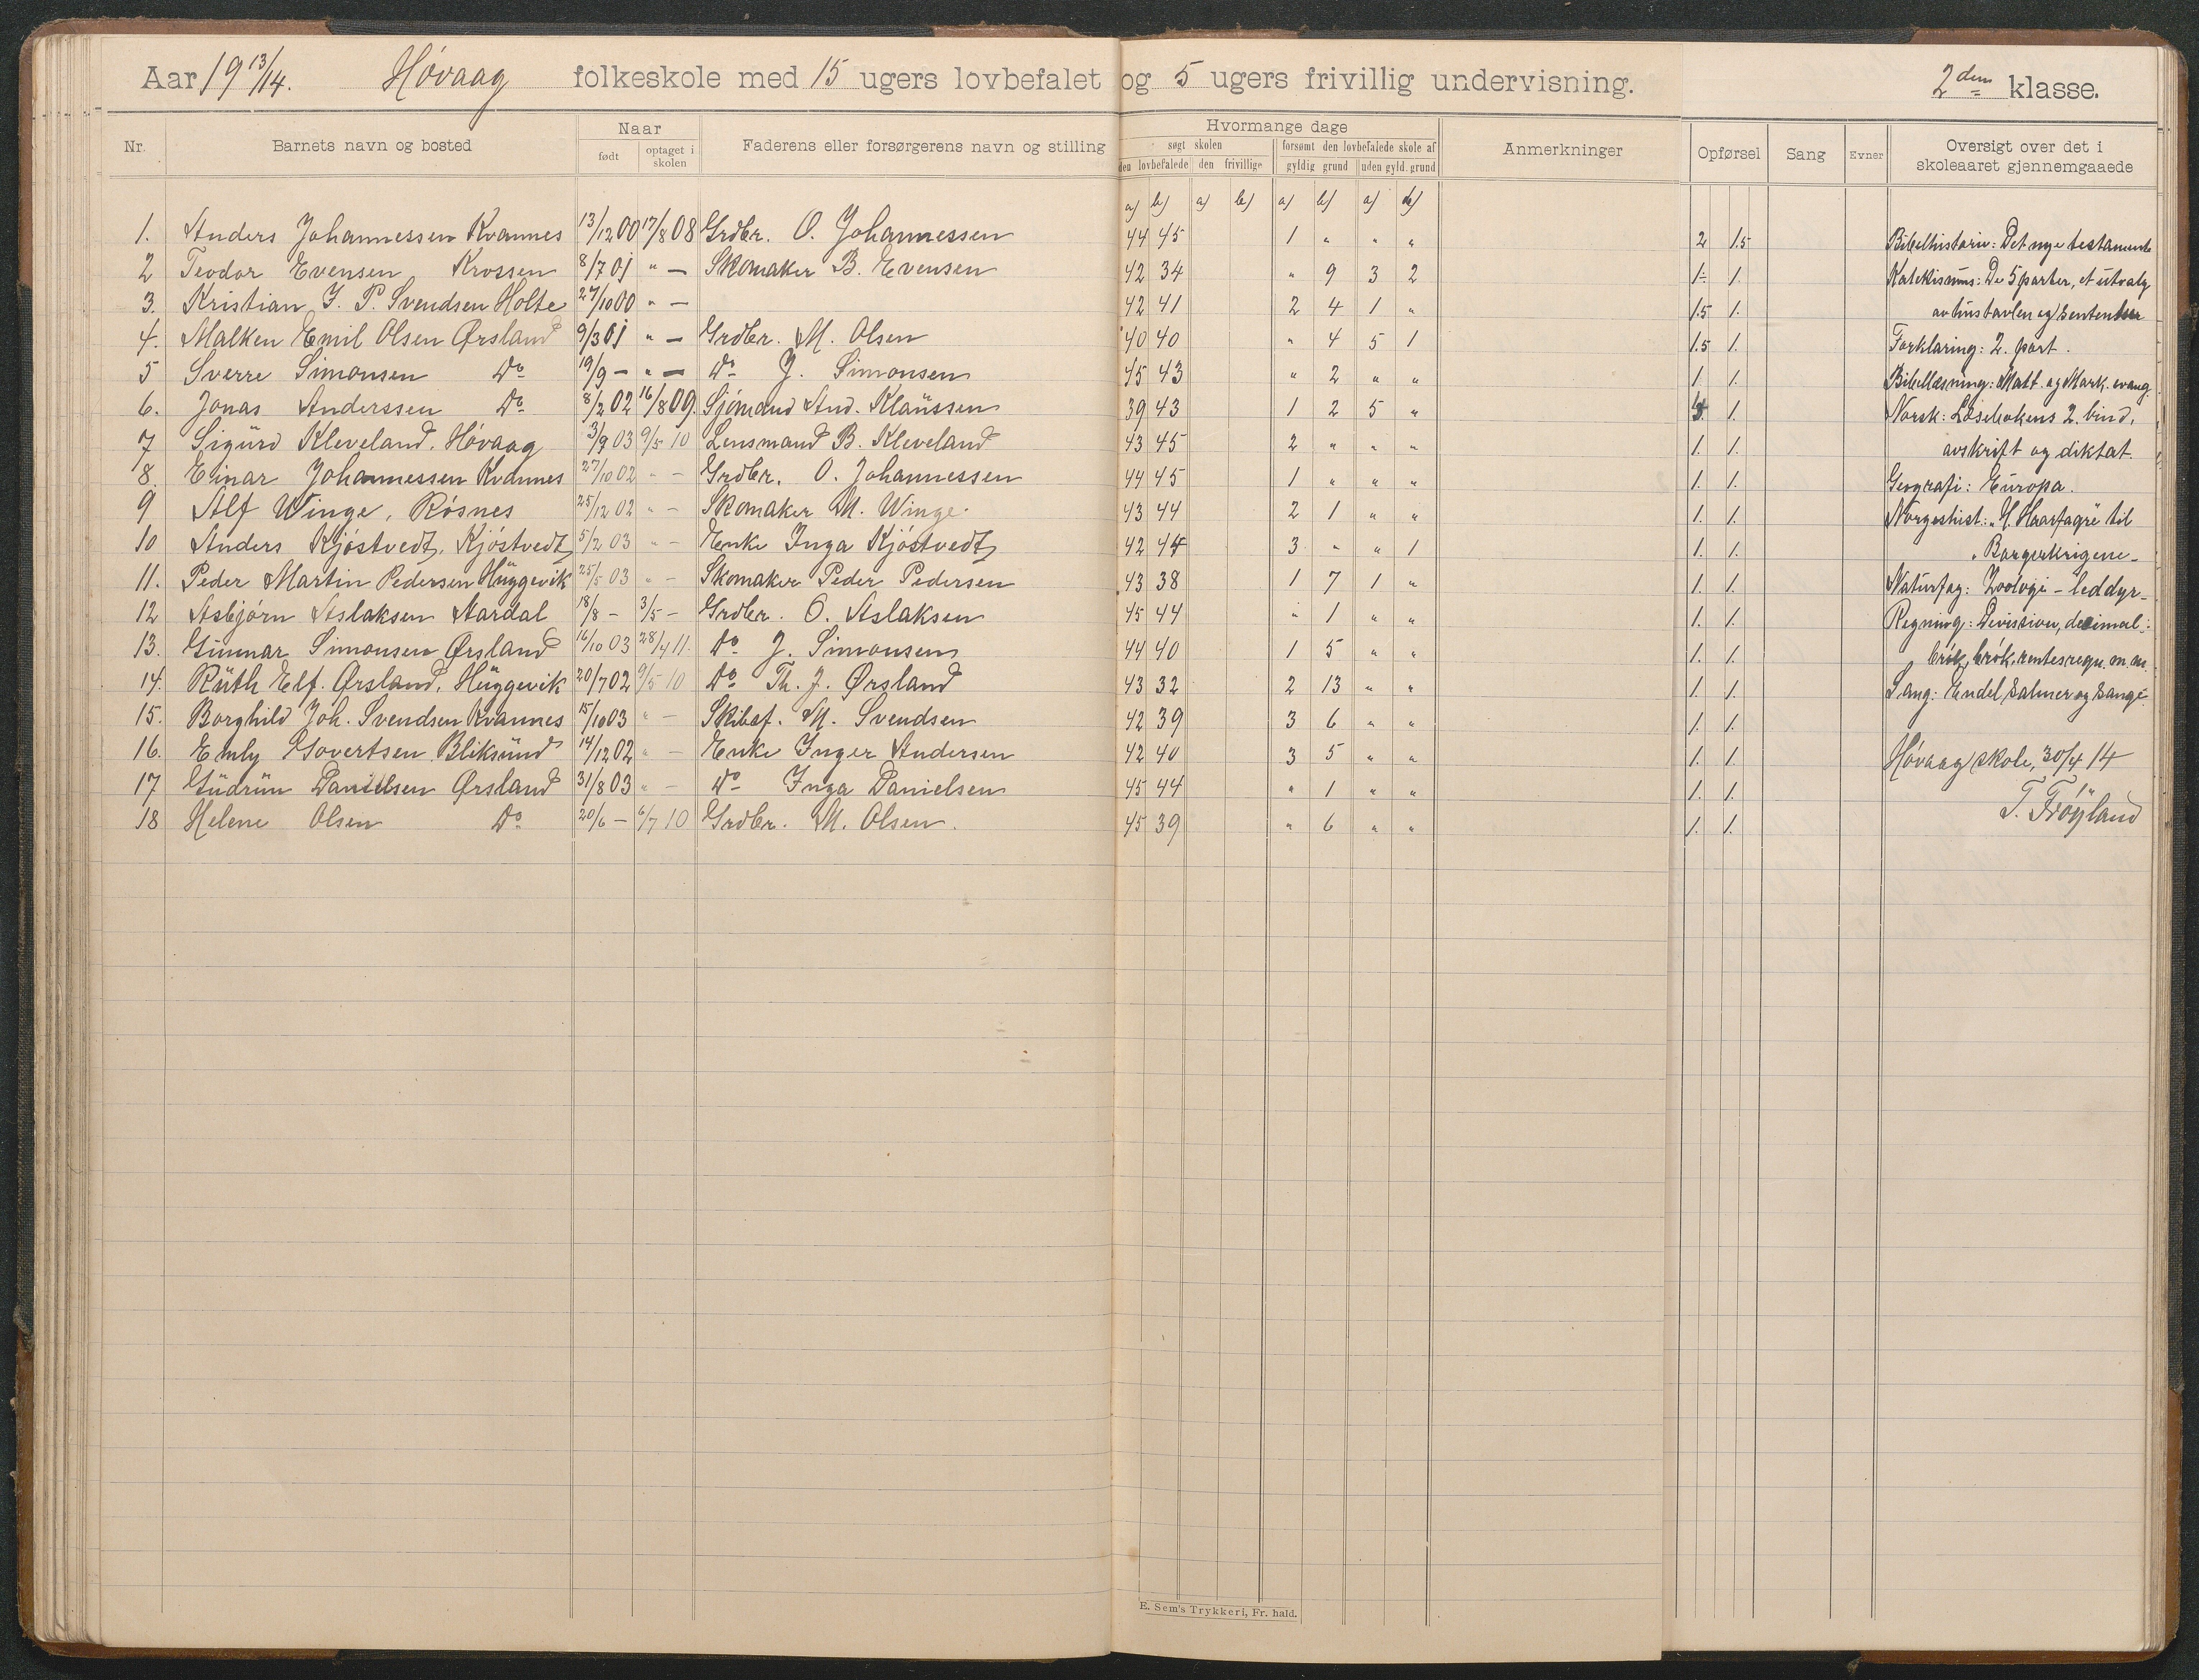 Aar 19 13/14. Høvaag folkeskole med 15 ugers lovbefalet og 5 ugers frivillig undervisning. 2den klasse.
Nr. Barnets navn og bosted Naar født optaget i skolen Faderens eller forsørgerens navn og stilling Hvormange dage søgt skolen den lovbefalede den frivillige forsømt den lovbefalede skole af gyldig grund uden gyld. grund Anmerkninger Opførsel Sang Evner Oversigt over det i skoleaaret gjennemgaaede
a) b) a) b) a) b) a) b)
1. Anders Johannessen Kvannes 13/12 00 17/8 08 Grdbr. O. Johannessen 44 45 1 " " " 2 1.5 Bibelhistorie: Det nye testamente
2 Teodor Evensen Krossen 8/7 01 " — Skomaker B. Evensen 42 34 " 9 3 2 1÷ 1. Katekismus: De 5 parter, et utvalg
3. Kristian J. P. Svendsen Holte 27/10 00 " — 42 41 2 4 1 " 1.5 1. av hustavlen og sentenser
4. Malken Emil Olsen Ørsland 9/3 01 " — Grdbr. M. Olsen 40 40 " 4 5 1 1.5 1. Forklaring: 2. part.
5 Sverre Simonsen Do 19/9 — " — Do J. Simonsen 45 43 " 2 " " 1. 1. Bibellæsning: Matt. og Mark. evang.
6. Jonas Anderssen Do 8/2 02 16/8 09. Sjømand And. Klaussen 39 43 1 2 5 " 1. Norsk: Læsebokens 2. bind,
7 Sigurd Kleveland. Høvaag 3/9 03 9/5 10 Lensmand B. Kleveland 43 45 2 " " " 1. 1. avskrift og diktat.
8. Einar Johannessen Kvannes 27/10 02 " — Grdbr. O. Johannessen 44 45 1 " " " 1. 1. Geografi: Europa.
9 Alf Winge, Røsnes 25/12 02 " — Skomaker M. Winge. 43 44 2 1 " " 1. 1. Norgeshist.: "H. Haarfagre til
10 Anders Kjøstvedt, Kjøstvedt 5/2 03 " — Enke Inga Kjøstvedt 42 44 3 " " 1 1. 1. "Borgerkrigene —
11. Peder Martin Pedersen Huggevik 25/5 03 " — Skomaker Peder Pedersen 43 38 1 7 1 " 1. 1. Naturfag: Zoologi — leddyr —
12 Asbjørn Aslaksen Aardal 18/8 — 3/5 — Grdbr. O. Aslaksen 45 44 " 1 " " 1. 1. Regning: Division, desimal-
13. Gunnar Simonsen Ørsland 16/10 03 28/4 11. Do J. Simonsen 44 40 1 5 " " 1. 1. brøk, brøk, rentesregn. m. m.
14. Ruth Elf. Ørsland. Huggevik 20/7 02 9/5 10 Do Th. J. Ørsland 43 32 2 13 " " 1. 1. Sang: Endel salmer og sange.
15. Borghild Joh. Svendsen Kvannes 15/10 03 " — Skibsf. M. Svendsen 42 39 3 6 " " 1. 1.
16. Emly Govertsen Bliksund 14/12 02 " — Enke Inger Andersen 42 40 3 5 " " 1. 1. Høvaag skole, 30/4 14
17 Gudrun Danielsen Ørsland 31/8 03 " — Do Inga Danielsen 45 44 " 1 " " 1. 1. T. Frøyland
18 Helene Olsen Do 20/6 — 6/7 10 Grdbr. M. Olsen. 45 39 " 6 " " 1. 1.
E. Sem's Trykkeri, Fr. hald.